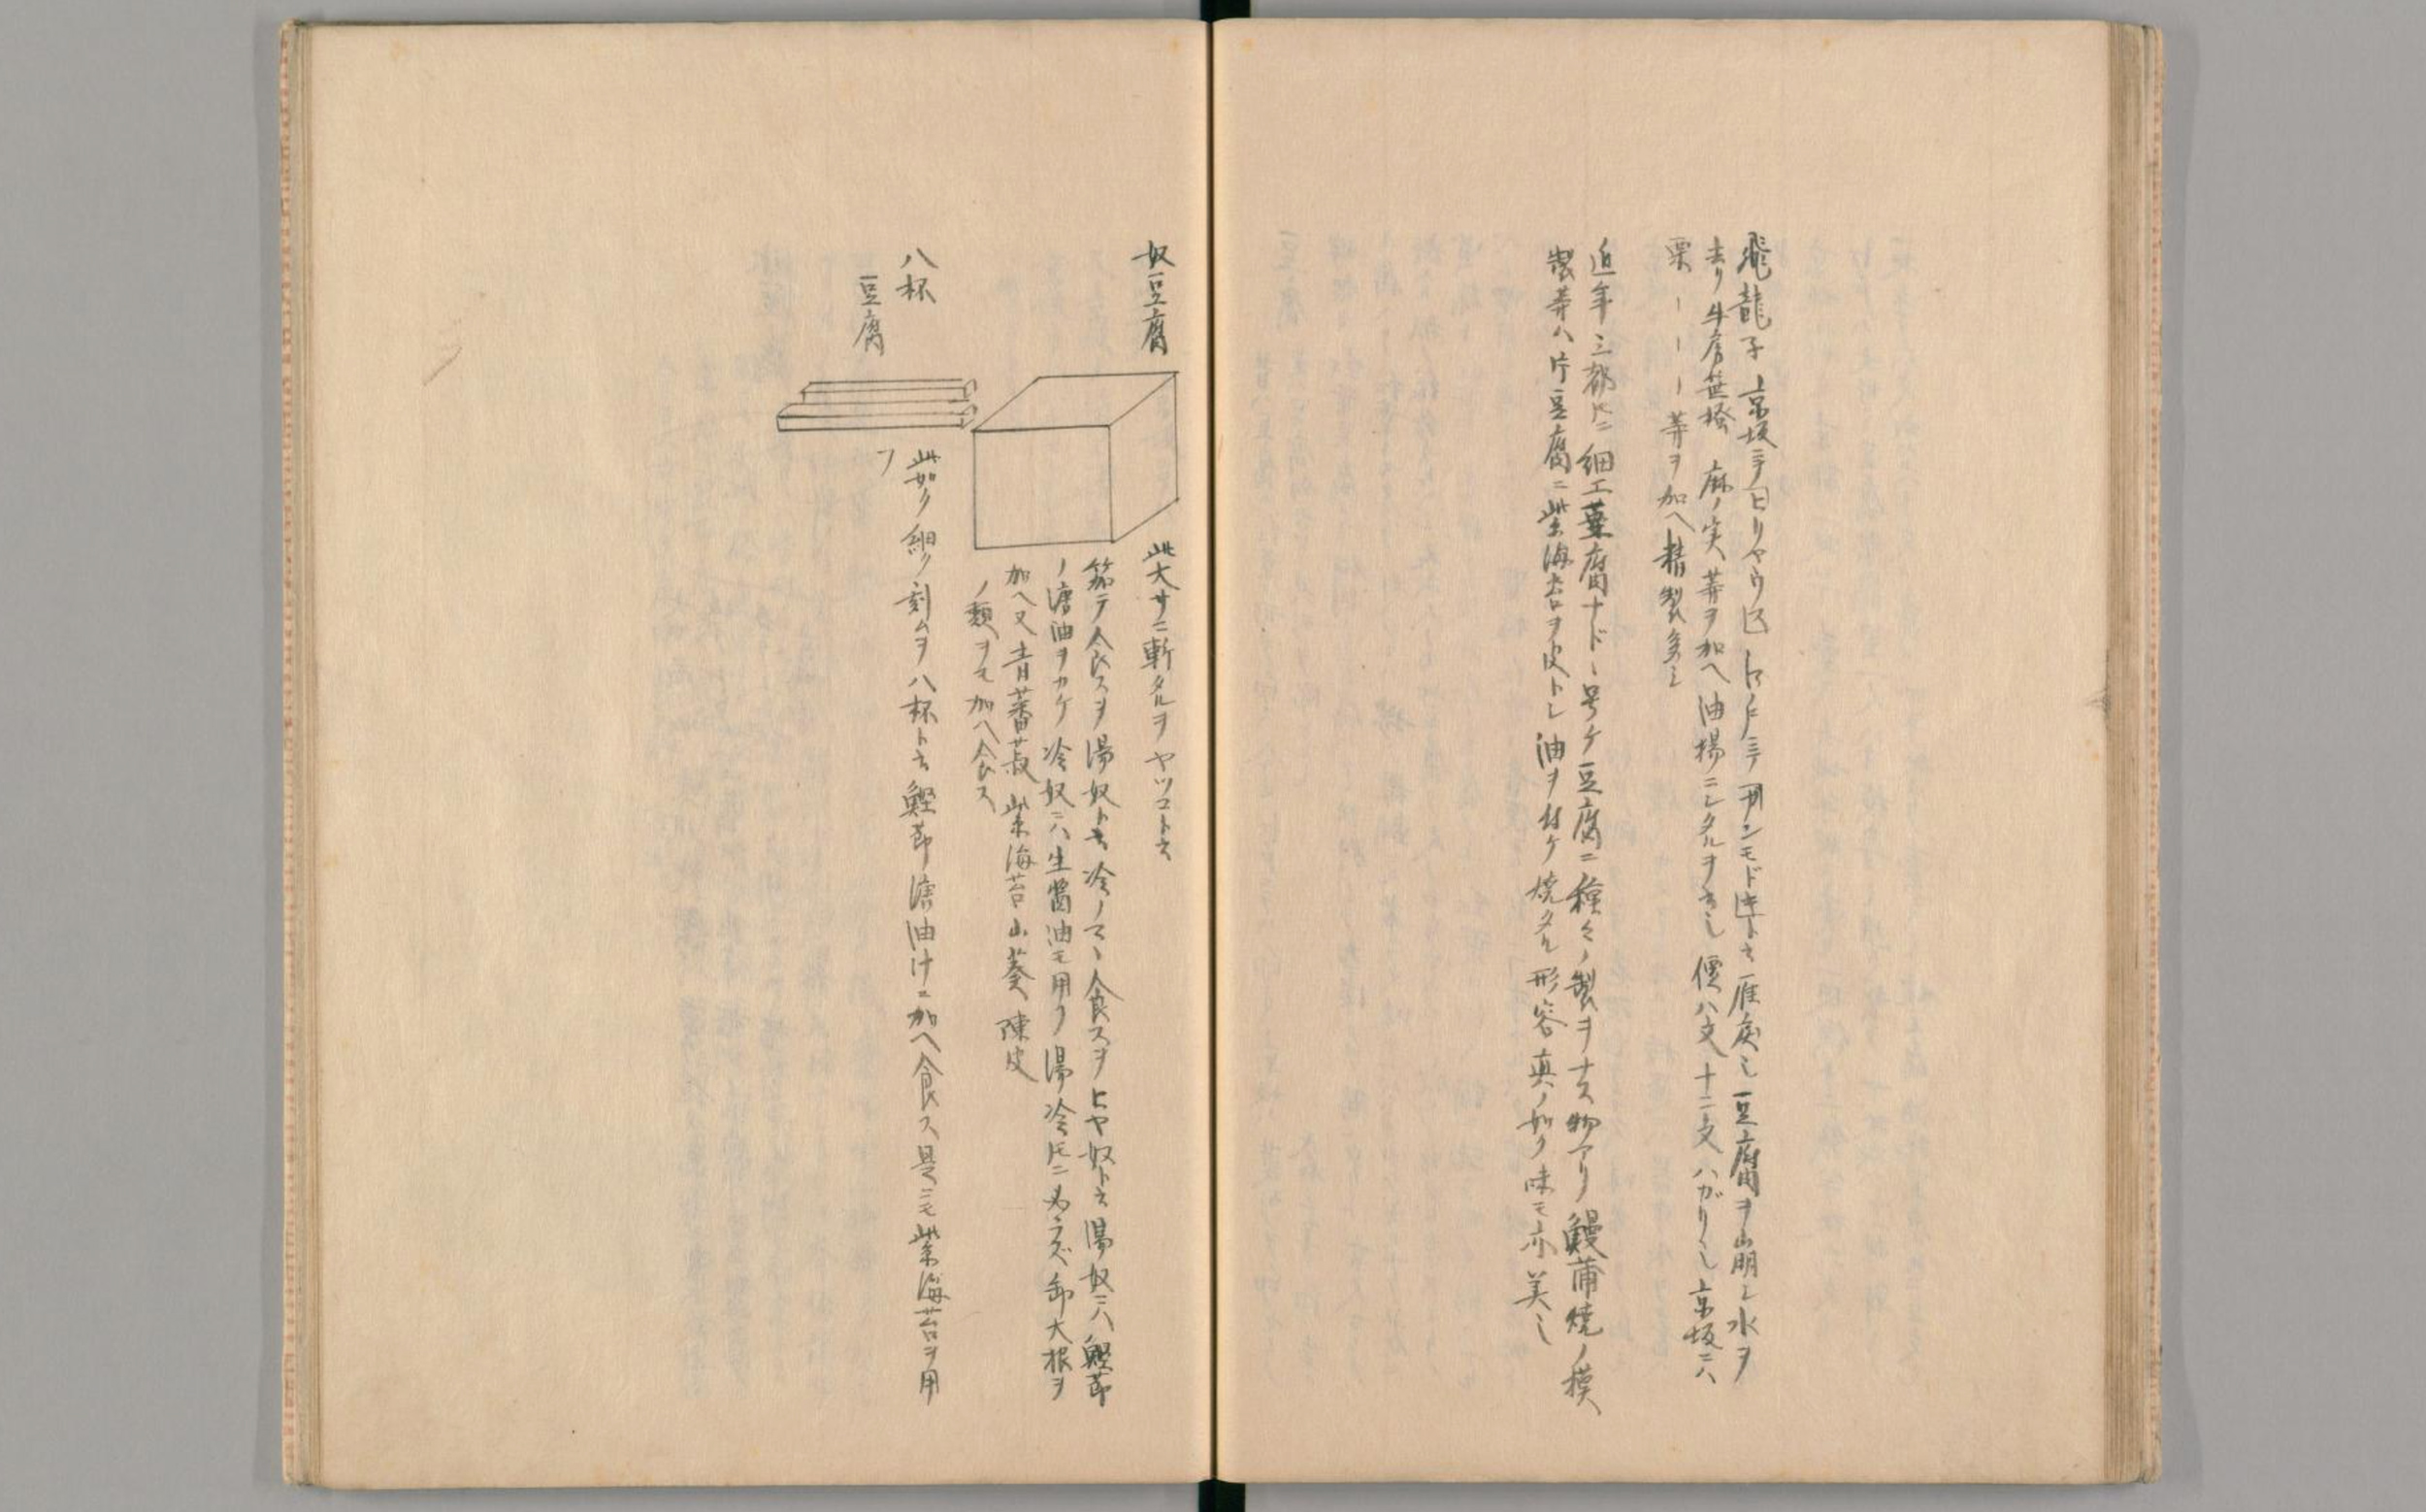 飛龍子京坂ニテヒリヤウズ江戸ニテガンモドキト云雁戻シ豆腐ヲ崩シ水ヲ
去リ牛房笹掻麻ノ実等ヲ加ヘ油揚ニシタルヲ云也價八文十二文バカリ也京坂ニハ
栗ーーー等ヲ加ヘ精製多シ
近年三都トモニ細工葉腐ナドヽ号ケ豆腐ニ種々ノ製ヲナス物アリ鰻蒲焼ノ模
製等ハ片豆腐ニ紫海苔ヲ皮トシ油ヲ付ケ焼タル形容真ノ如ク味モ亦美也
奴豆腐
此大サニ斬タルヲヤツコト云
テ食スヲ湯奴ト云冷ノマヽ食スヲヒヤ奴ト云湯奴ニハ鰹節
ノ醤油ヲカケ冷奴ニハ生醤油モ用フ湯冷トモニ必ラズ卸大根ヲ
加ヘ又青蕃菽紫海苔山葵陳皮
ノ類ヲモ加ヘ食ス
八杯
豆腐
此如ク細ク刻ムヲ八杯ト云鰹節醤油汁ニ加ヘ食ス是ニモ紫海苔ヲ用
フ